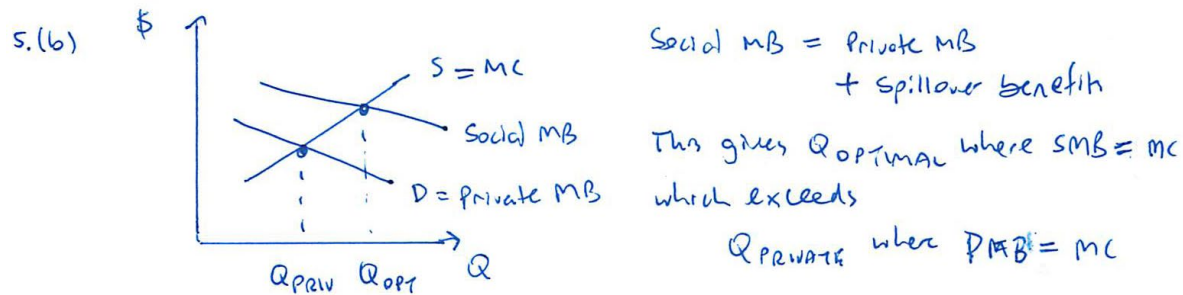 5.(b)
$
S = MC
Social MB
D = Private MB
QPRIV QOPT Q
Social MB = Private MB
+ Spillover benefits
This gives QOPTIMAL where SMB = MC
which exceeds
QPRIVATE where PMB = MC